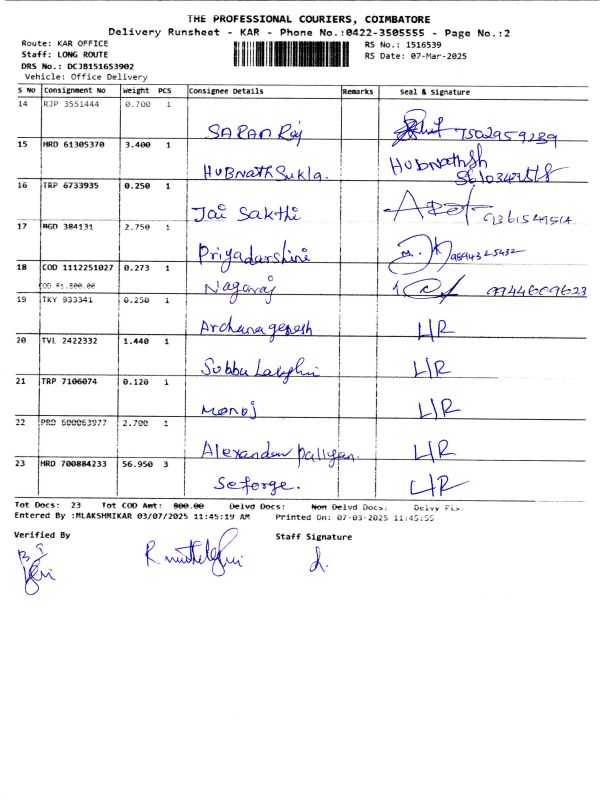 THE PROFESSIONAL COURIERS, COIMBATORE
Delivery Runsheet - KAR - Phone No.:0422-3505555 - Page No.:2
Route: KAR OFFICE
RS No.: 1516539
Staff: LONG ROUTE
RS Date: 07-Mar-2025
DRS No.: DCJB151653902
Vehicle: Office Delivery
S No Consignment No Weight PCS Consignee Details Remarks Seal & Signature
14 RJP 3551444 0.700 1
SARAN Raj 7502959239
15 MRD 61305370 3.400 1
HUBNATH Sukla.
HUBNATH
16 TRP 6733935 0.250 1
Jai Sakthi
17 MGD 384131 2.750 1
Priyadarshini 9894325432
18 COD 1112251027 0.273 1
COD Rs.800.00
Nagaraj 9944609623
19 TKY 933341 0.250 1
Archana genesh L/R
20 TVL 2422332 1.440 1
Subbu L/R
21 TRP 7106074 0.120 1
Manoj L/R
22 PRD 600063977 2.700 1
Alexander L/R
23 MRD 700884233 56.950 3
Seforge. L/R
Tot Docs: 23 Tot COD Amt: 800.00 Delvd Docs: Non Delvd Docs:
Entered By :MLAKSHMIKAR 03/07/2025 11:45:19 AM Printed On: 07-03-2025 11:45:55
Verified By
Staff Signature